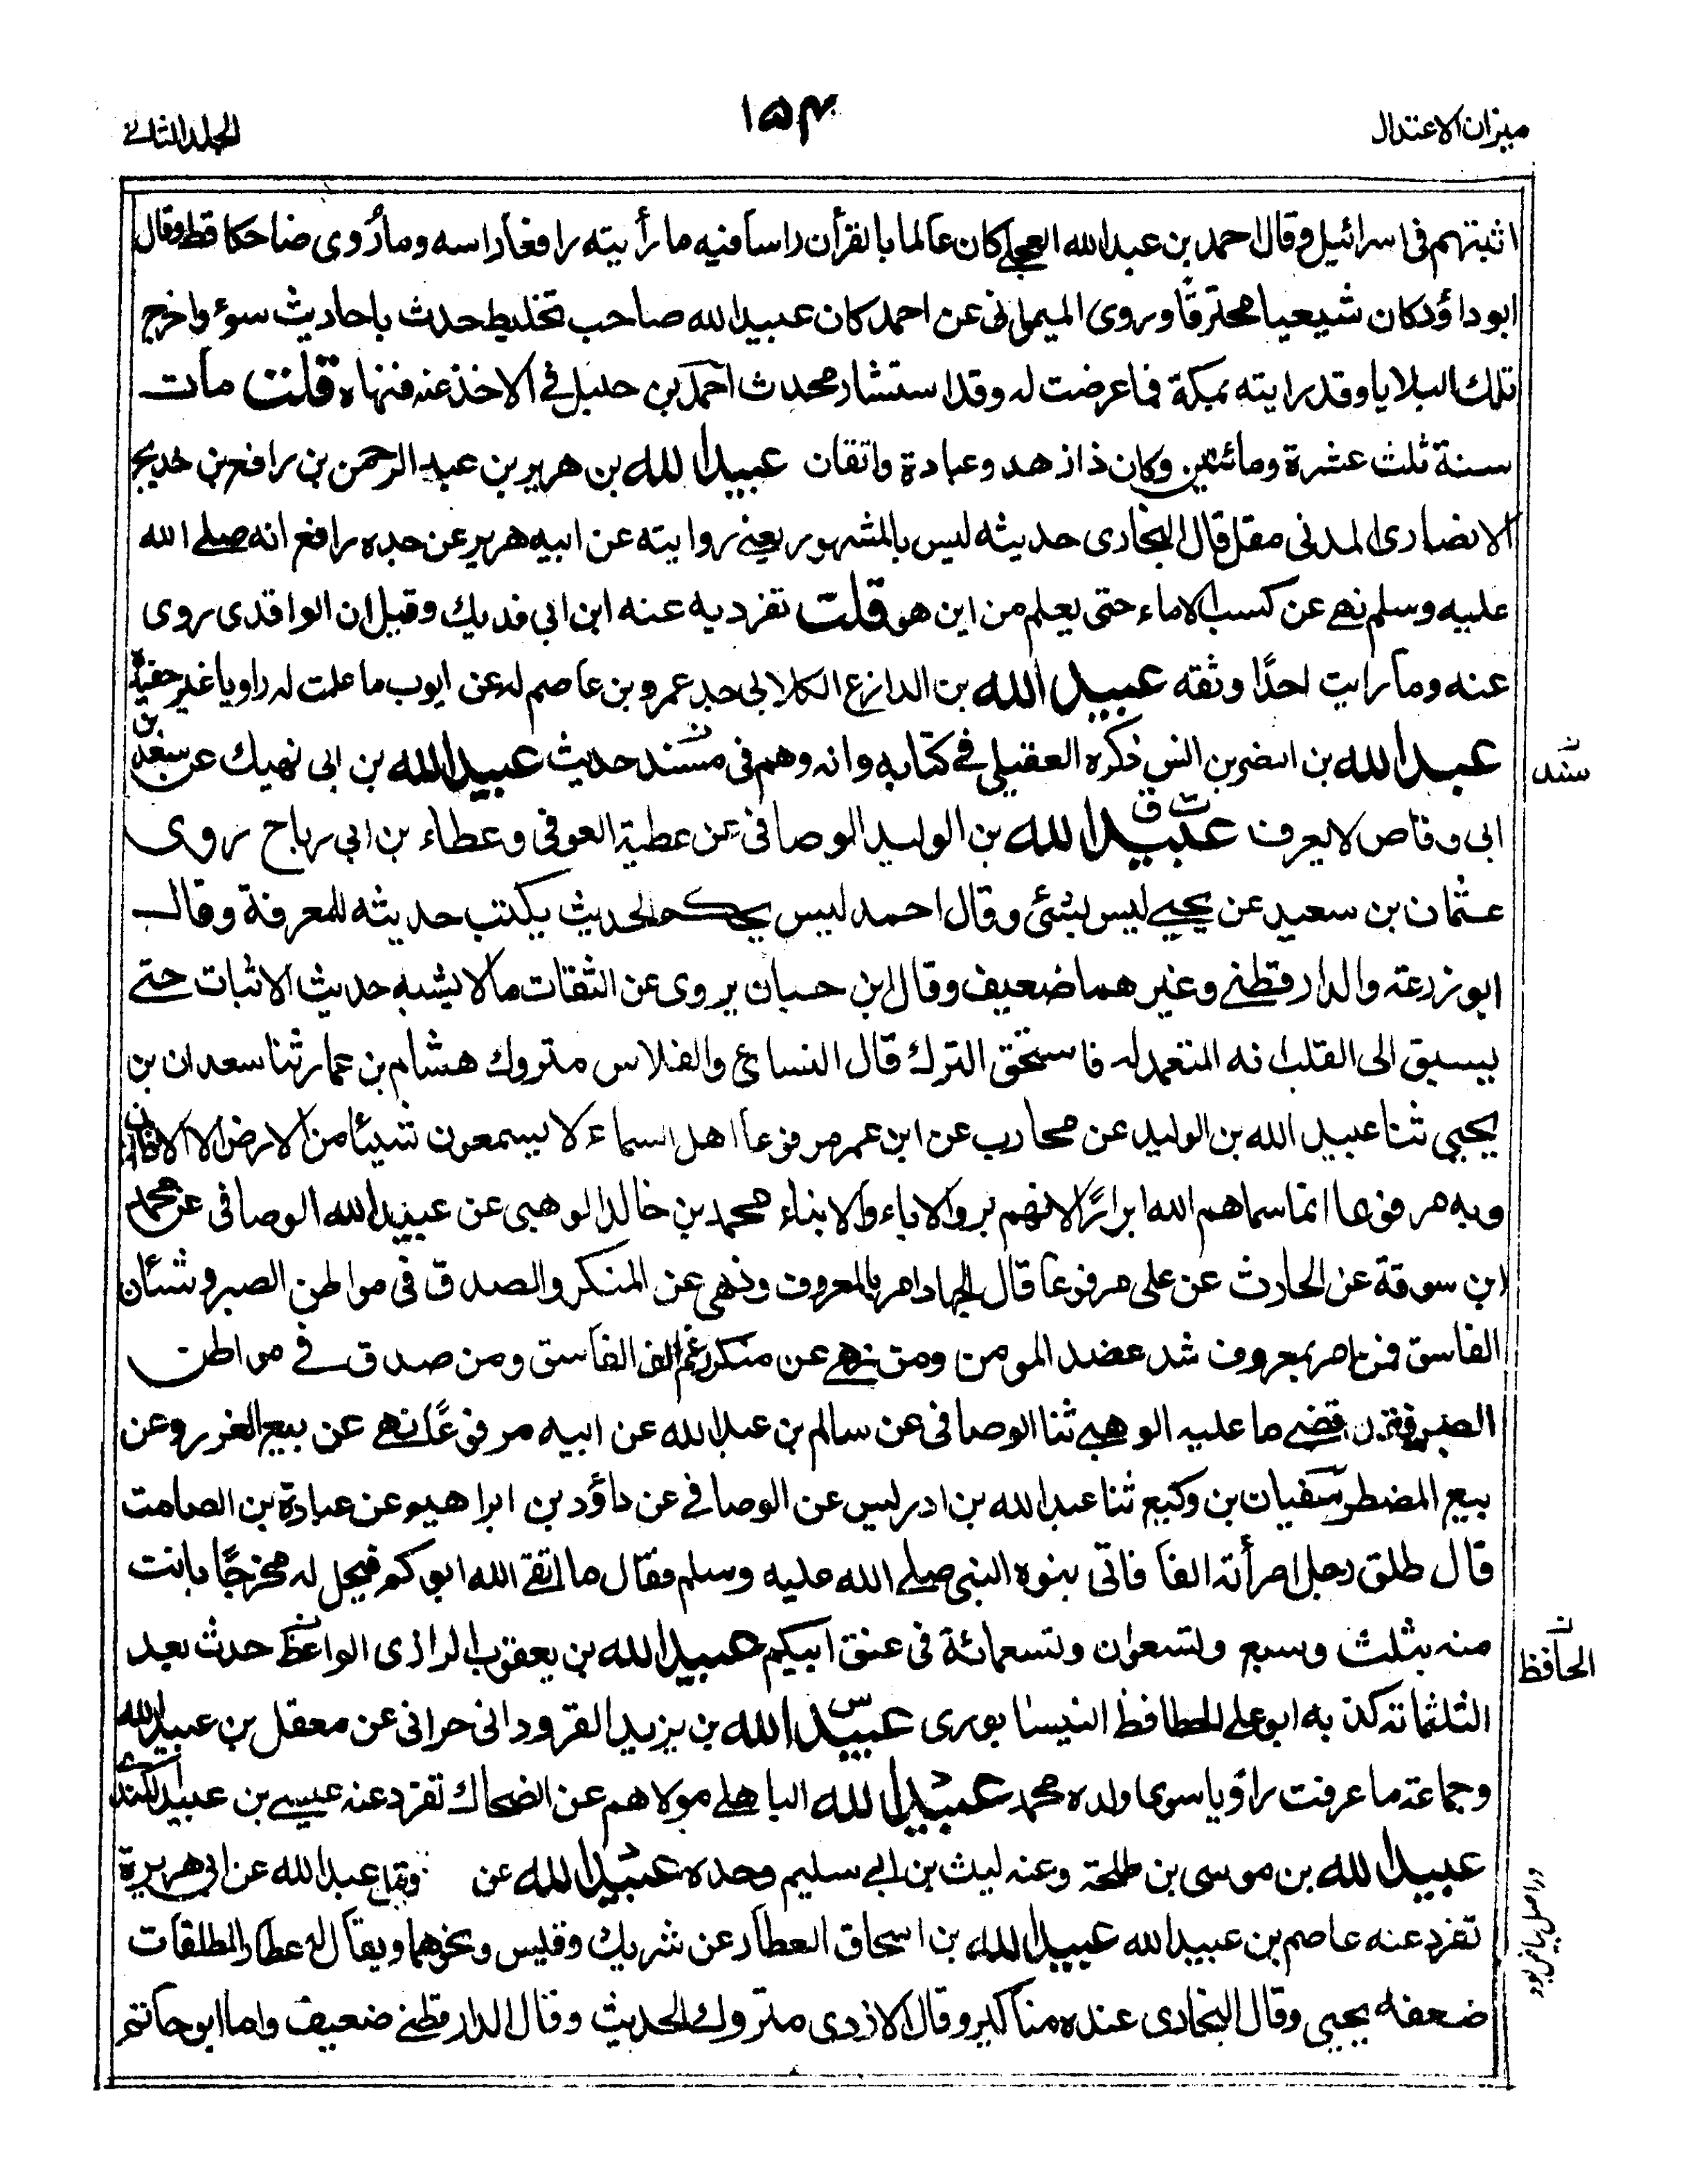 ميزان الاعتدال
١٥٣
الجلد الثانے
اثبتهم فی اسرائیل وقال احمد بن عبد الله العجلے کان عالما بالقرأن راسا فیه ما رأیته رافعا راسه وما رُوی ضاحکا قط وقال
ابو داؤد کان شیعیا محترقًا وروی المیمونی عن احمد کان عبید الله صاحب تخلیط حدث باحادیث سوء واخرج
تلك البلایا وقد رایته بمکة فما عرضت له وقد استشار محدث احمد بن حنبل فے الاخذ عنه فنهاه قلت مات
سنة ثلث عشرة ومائتین وکان ذا زهد وعبادة واتقان عبید الله بن هریر بن عبد الرحمن بن رافع بن خدیج
الانصاری المدنی مقل قال البخاری حدیثه لیس بالمشهور یعنے روایته عن ابیه هریر عن جده رافع انه صلے الله
علیه وسلم نهے عن کسب الاماء حتی یعلم من این هو قلت تفرد به عنه ابن ابی فدیك وقیل ان الواقدی روی
عنه وما رایت احدًا وثقه عبید الله بن الدازع الکلابی جد عمرو بن عاصم له عن ایوب ما علمت له راویا غیر حفیده
عبد الله بن النضر بن انس ذکره العقیلی فے کتابه وانه وهم فی مسند حدیث عبید الله بن ابی نهیك عن سعد بن
سند
ابی وقاص لا یعرف عبید الله بن الولید الوصافی عن عطیة العوفی وعطاء بن ابی رباح روی
عثمان بن سعید عن یحیے لیس بشئ وقال احمد لیس یحکم الحدیث یکتب حدیثه للمعرفة وقال
ابو زرعة والدارقطنے وغیرهما ضعیف وقال ابن حبان یروی عن الثقات ما لا یشبه حدیث الاثبات حتے
یسبق الی القلب انه المتعمد له فاستحق الترك قال النسائ والفلاس متروك هشام بن عمار ثنا سعدان بن
یحیی ثنا عبید الله بن الولید عن محارب عن ابن عمر مرفوعا اهل السماء لا یسمعون شیئا من الارض الا الاذان
وبه مرفوعا انما سماهم الله ابرارًا لانهم بروا الاباء والابناء محمد بن خالد الوهبی عن عبید الله الوصافی عن محمد
ابن سوقة عن الحارث عن علی مرفوعا قال الجهاد امر بالمعروف ونهی عن المنکر والصدق فی مواطن الصبر وشنأن
الفاسق فمن امر بمعروف شد عضد المومن ومن نهے عن منکر رغم انف الفاسق ومن صدق فے مواطن
الصبر فقد قضے ما علیه الوهبے ثنا الوصافی عن سالم بن عبد الله عن ابیه مرفوعًا نهے عن بیع الغرر وعن
بیع المضطر سفیان بن وکیع ثنا عبد الله بن ادریس عن الوصافے عن داؤد بن ابراهیم عن عبادة بن الصامت
قال طلق رجل امرأته الفا فاتی بنوه النبی صلے الله علیه وسلم فقال ما اتقے الله ابوکم فیجعل له مخرجًا بانت
منه بثلث وسبع وتسعون وتسعمائة فی عنق ابیکم عبید الله بن یعقوب الرازی الواعظ حدث بعد
الحافظ
الثلثمائة کذبه ابو علے الحافظ النیسابوری عبید الله بن یزید القردوانی حرانی عن معقل بن عبید الله
وجماعة ما عرفت راویا سوی ولده محمد عبید الله الباهلے مولاهم عن الضحاك تفرد عنه عیسے بن عبید الکندی
عبید الله بن موسی بن طلحة وعنه لیث بن ابے سلیم وحده عبید الله عن وقاع عبد الله عن ابی هریرة
در اصل بیاض بود
تفرد عنه عاصم بن عبید الله عبید الله بن اسحاق العطار عن شریك وقیس ونحوهما ویقال له عطار المطلقات
ضعفه یحیی وقال البخاری عنده مناکیر وقال الازدی متروك الحدیث وقال الدارقطنے ضعیف واما ابن حاتم